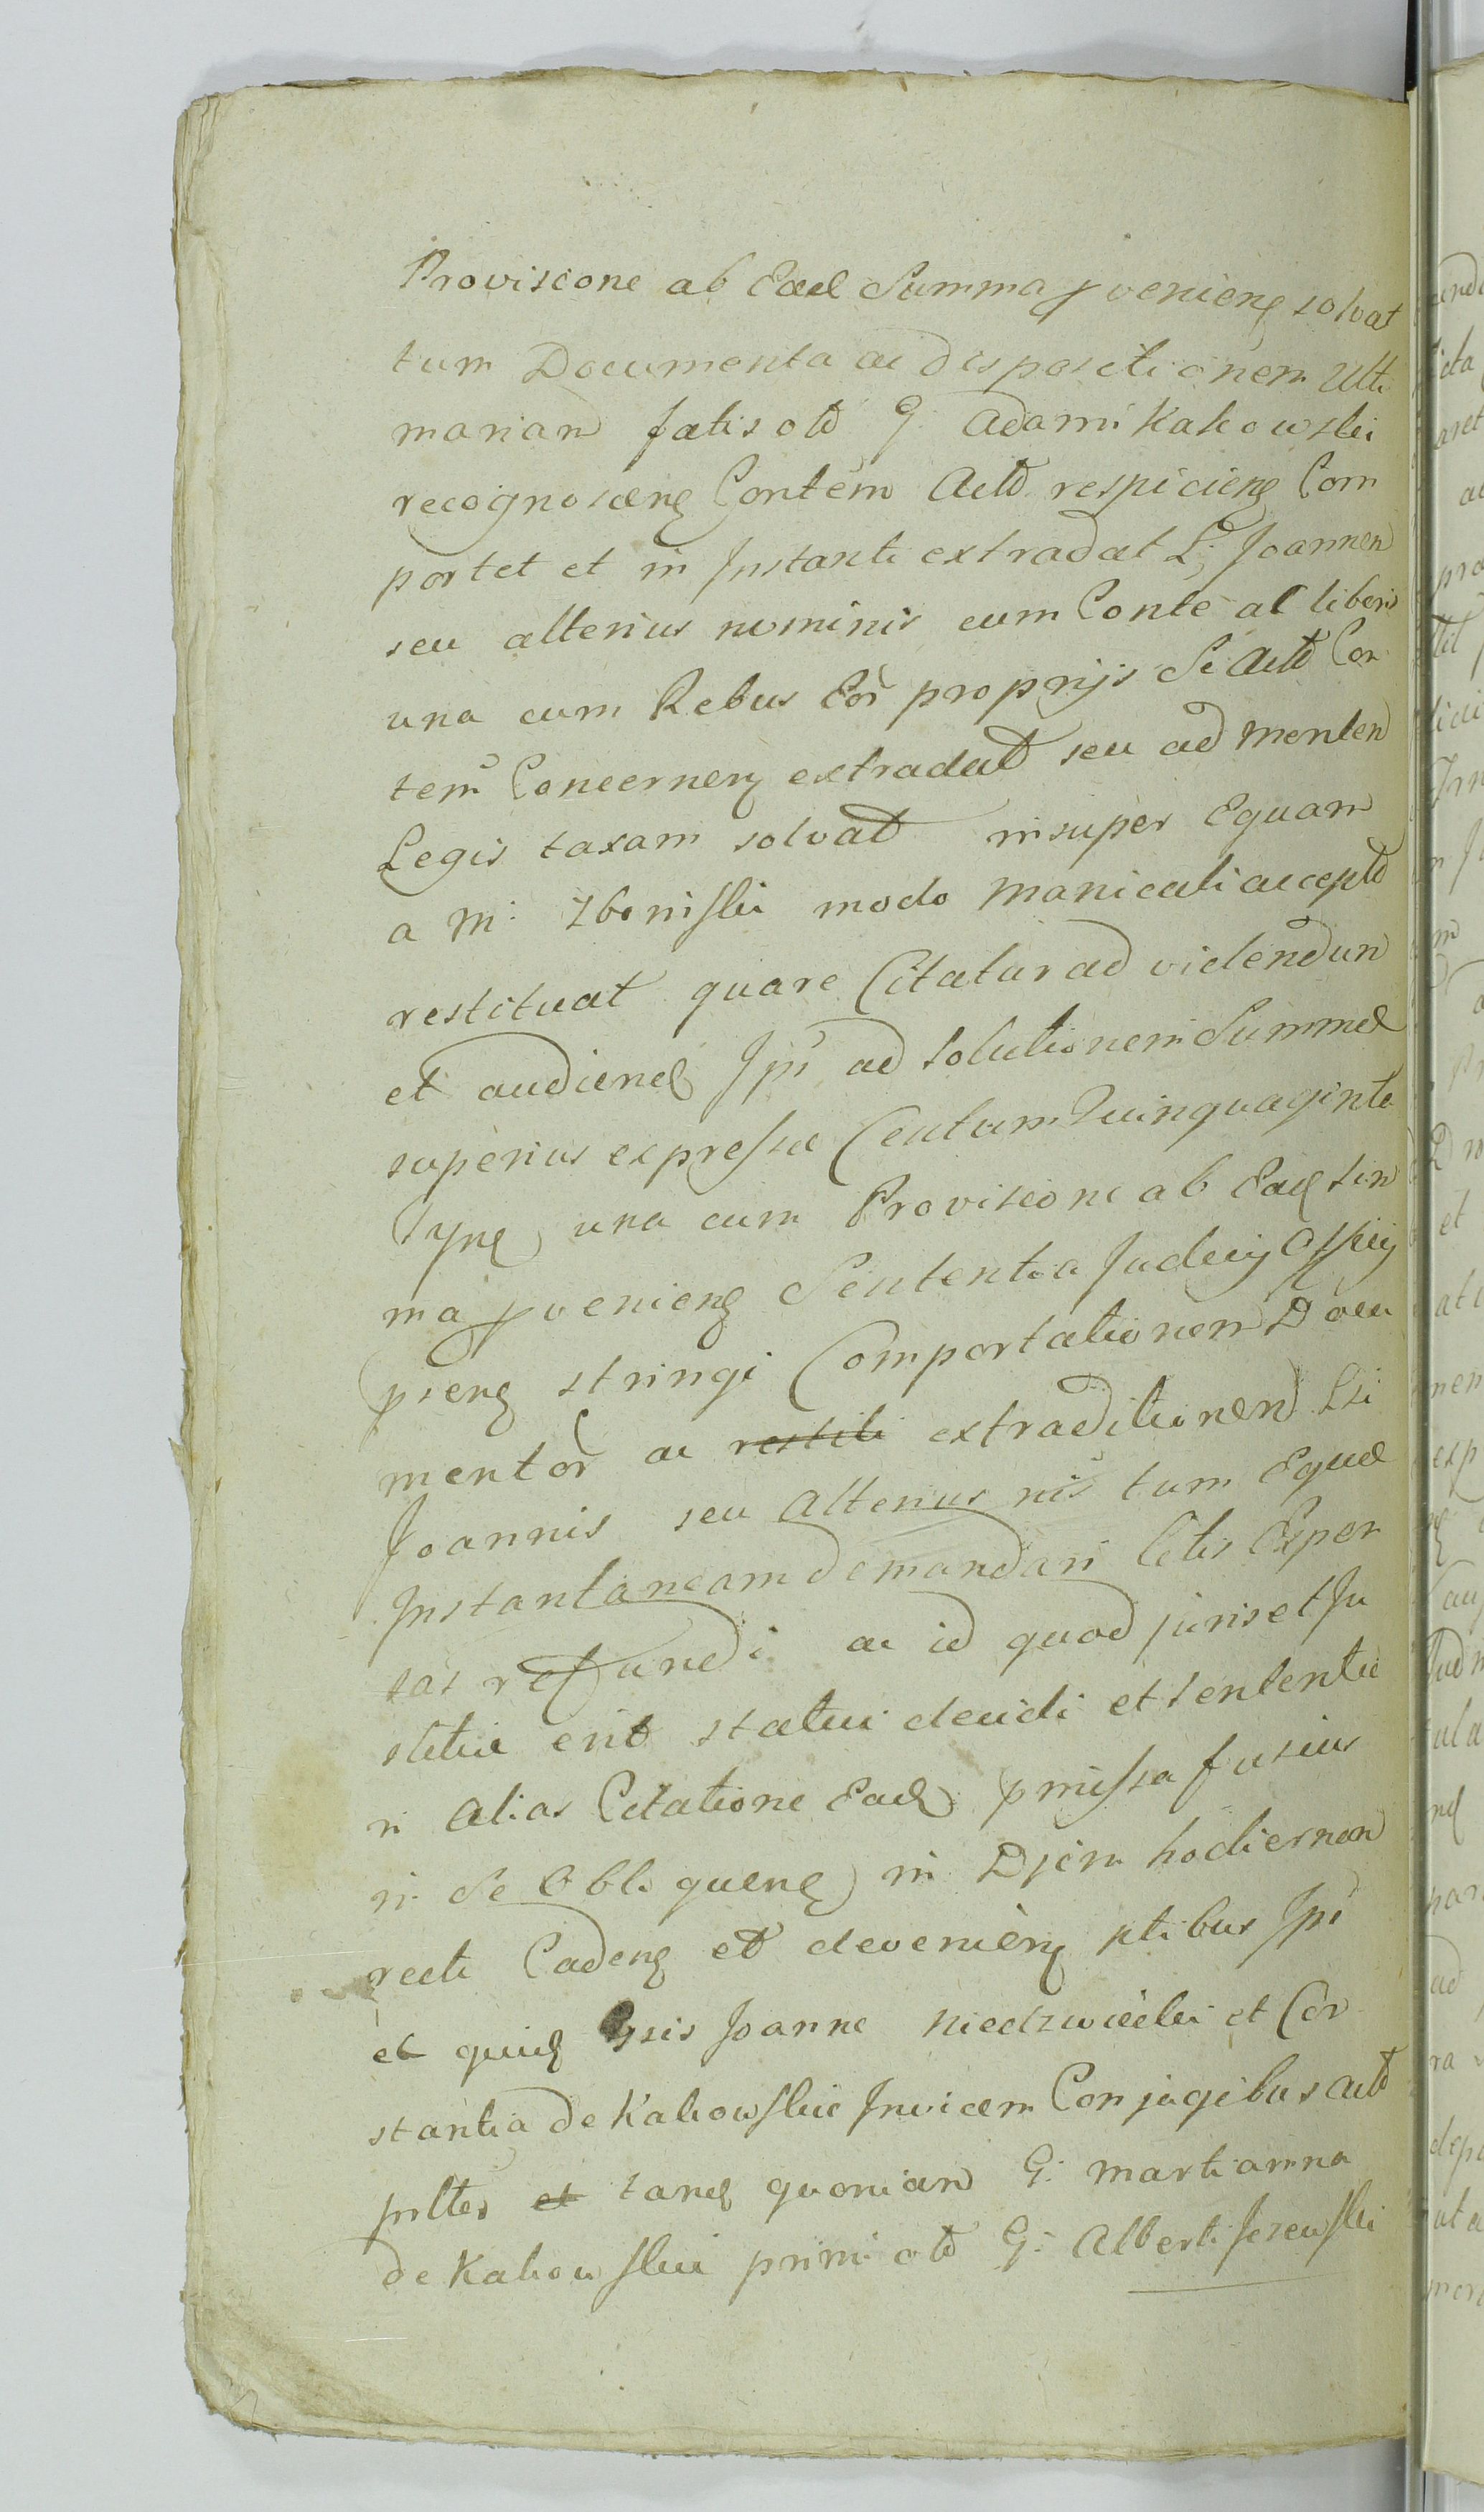 Provisione ab Ead Summa pveniens solvat
tum Documenta ac dispositionem Ulti
mariam fatis otd G. Adami Kakowski
recognoscens Contem Actd respiciens Com
portet et in Instanti extradat L. Joannem
seu alterius nominis cum Conte al liberis
una cum Rebus Eor proprijs Se Actd Con
tem Concernens extradat seu ad mentem
Legis taxam solvat insuper Equam
a M. Zboniski modo manicati acceptd
restituat quare Citatur ad videndum
et audiend Ipi ad Solutionem Summæ
superius expressæ Centum Quinquaginta
Tynf una cum Provisione ab Ead sum
ma pveniens Sententia Judicij Offcij
psens stringi Comportationem Docu
mentor ac restiti extraditionem Lti
Joannis seu Alterius nis tum Equæ
Instantaneam demandari litis Expen
sas refundi ac id quod juris et Ju
stitiæ erit statui decidi et sententia
ri Alias Citatione Ead pmissa fusius
in Se Obloquens in Djem hodiernam
recte Cadens et deveniens ptibus Ipi
et quid Gsis Joanne Niedzwiecki et Con
stantia de Kakowskie Invicem Conjugibus Actd
pultes et tand quoniam G. Martianna
de Kakowskie primi otd G. Alberti Jezewski